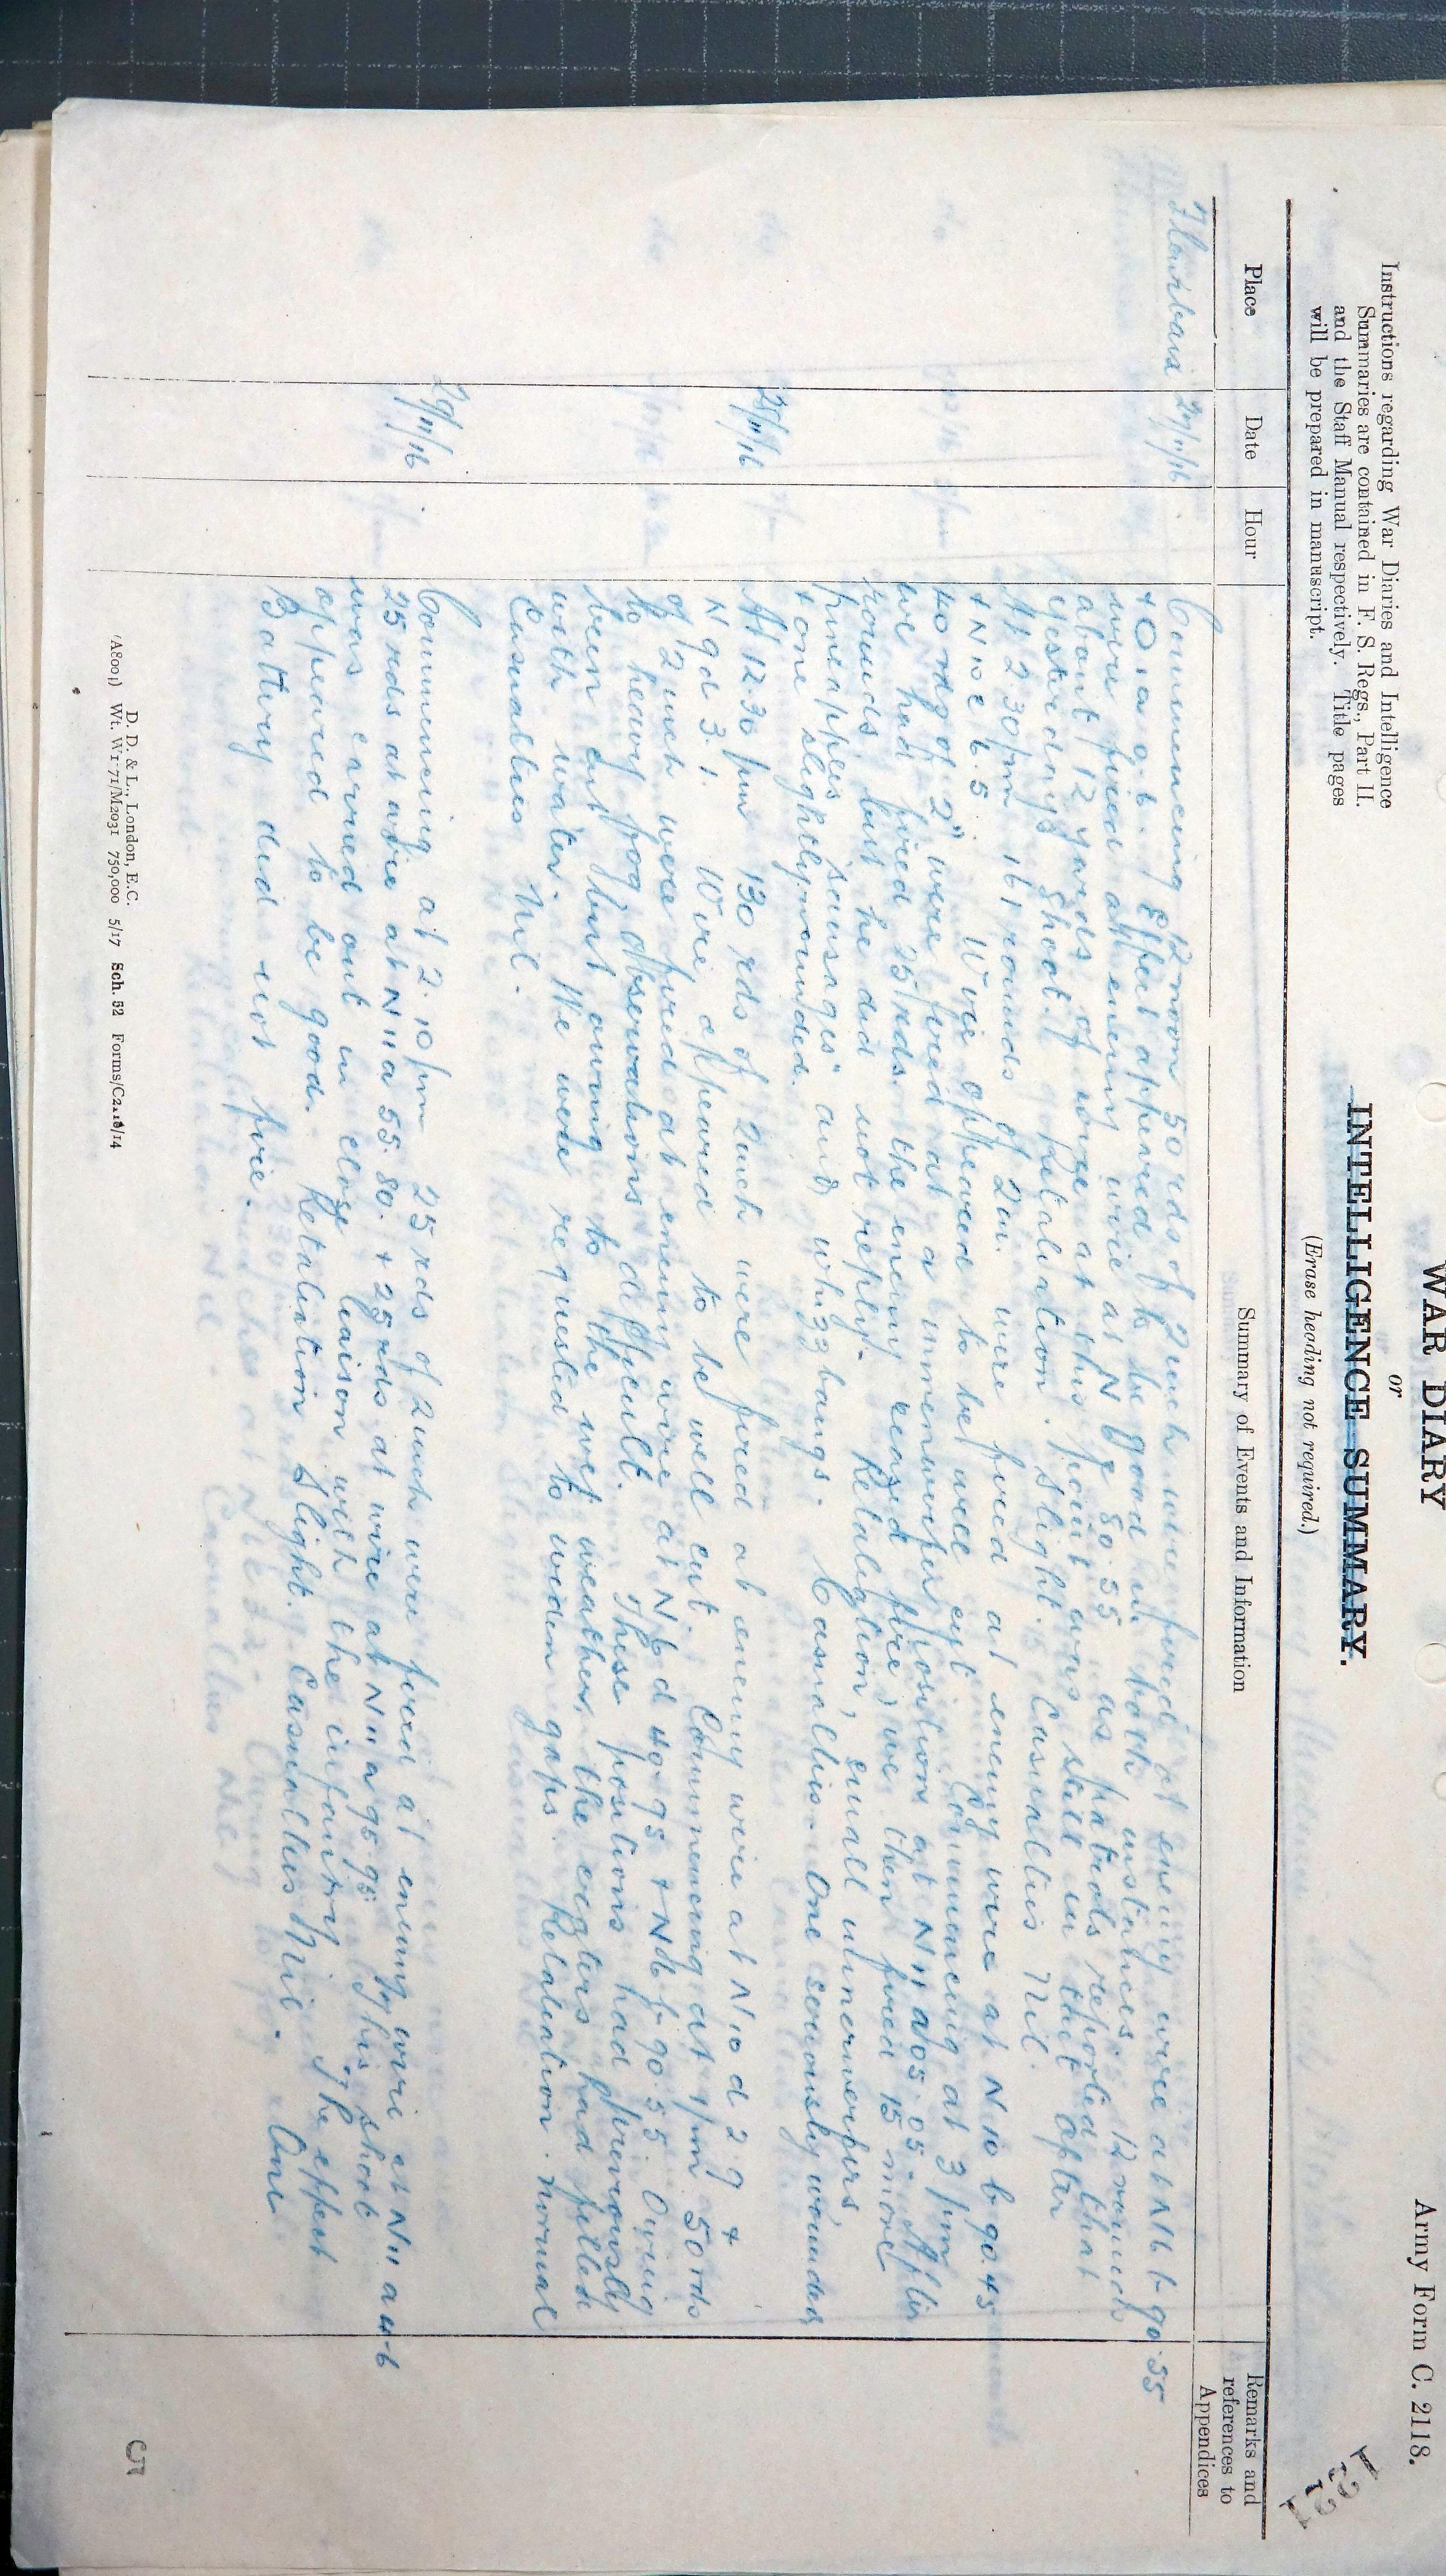 Army Form C. 2118.
WAR DIARY
or
INTELLIGENCE SUMMARY.
(Erase heading not required.)
Instructions regarding War Diaries and Intelligence
Summaries are contained in F. S. Regs., Part II.
and the Staff Manual respectively. Title pages
will be prepared in manuscript.
Place
Date
Hour
Summary of Events and Information
Remarks and
references to
Appendices
27/11/16 Commencing 12 noon 50 rds of 2 inch were fired at enemy wire at N16 b 90.55
+ O.1a 9.6. Effect appeared to be good in both instances. 12 rounds
were fired at enemy wire at N 80.55 as patrols reported that
about 12 yards of wire at this point was still in tact after
yesterdays shoot. Retaliation. Slight. Casualties Nil.
At 2.30 pm 161 rounds of 2 in. were fired at enemy wire at N 10 b 90.45
+ N10c 6.5. Wire appeared to be well cut. Commencing at 3 pm
40 rds of 2" were fired at a minenwerfer position at N11 a 05.05. After
we had fired 25 rds. the enemy ceased fire, we then fired 15 more
rounds but he did not reply. Retaliation, small minenwerfers,
pineapples "sausages" and whizzbangs. Casualties. One seriously wounded
+ one slightly wounded.
28/11/16 At 12.30 pm 130 rds of 2 inch were fired at enemy wire at N10 d 2.9 +
N 9 d 3.1. Wire appeared to be well cut. Commencing at 1 pm 50 rds
of 2 inch were fired at enemy wire at N 6 d 40.95 + N 90.55. Owing
to heavy fog observations difficult. These positions had previously
been cut but owing to the wet weather the craters had filled
with water. We were requested to widen gaps. Retaliation. Normal
Casualties Nil.
29/11/16 Commencing at 2.10 pm 25 rds of 2 inch were fired at enemy wire at N11 a 4.6
25 rds at wire at N11a 55.80. + 25 rds at wire at N11 a 95.95 This shoot
was carried out in close liaison with the infantry. The effect
appeared to be good. Retaliation Slight. Casualties Nil. One
Battery did not fire.
D. D. & L., London, E.C.
(A8001) Wt. W1771/M2031 750,000 5/17 Sch. 52 Forms/C2118/14
5